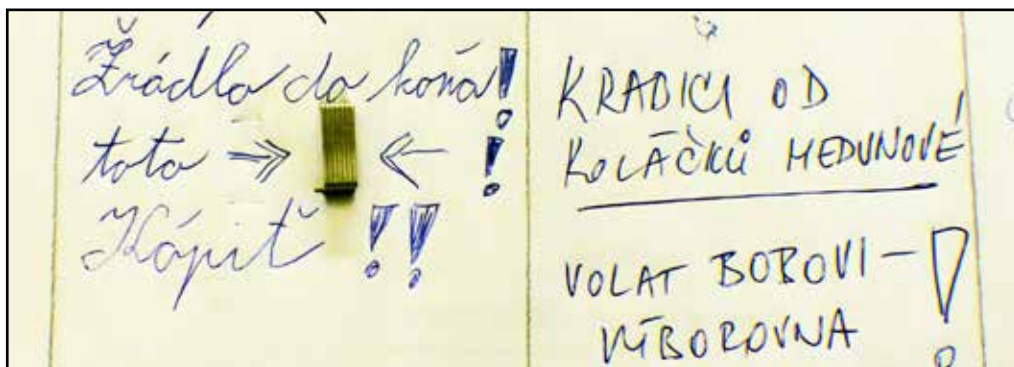 Žrádlo do koňa!
toto !
Kópiť !!
KRADICI OD
KOLÁČKŮ MEDUNOVÉ
VOLAT BOBOVI – !
VÍBOROVNA